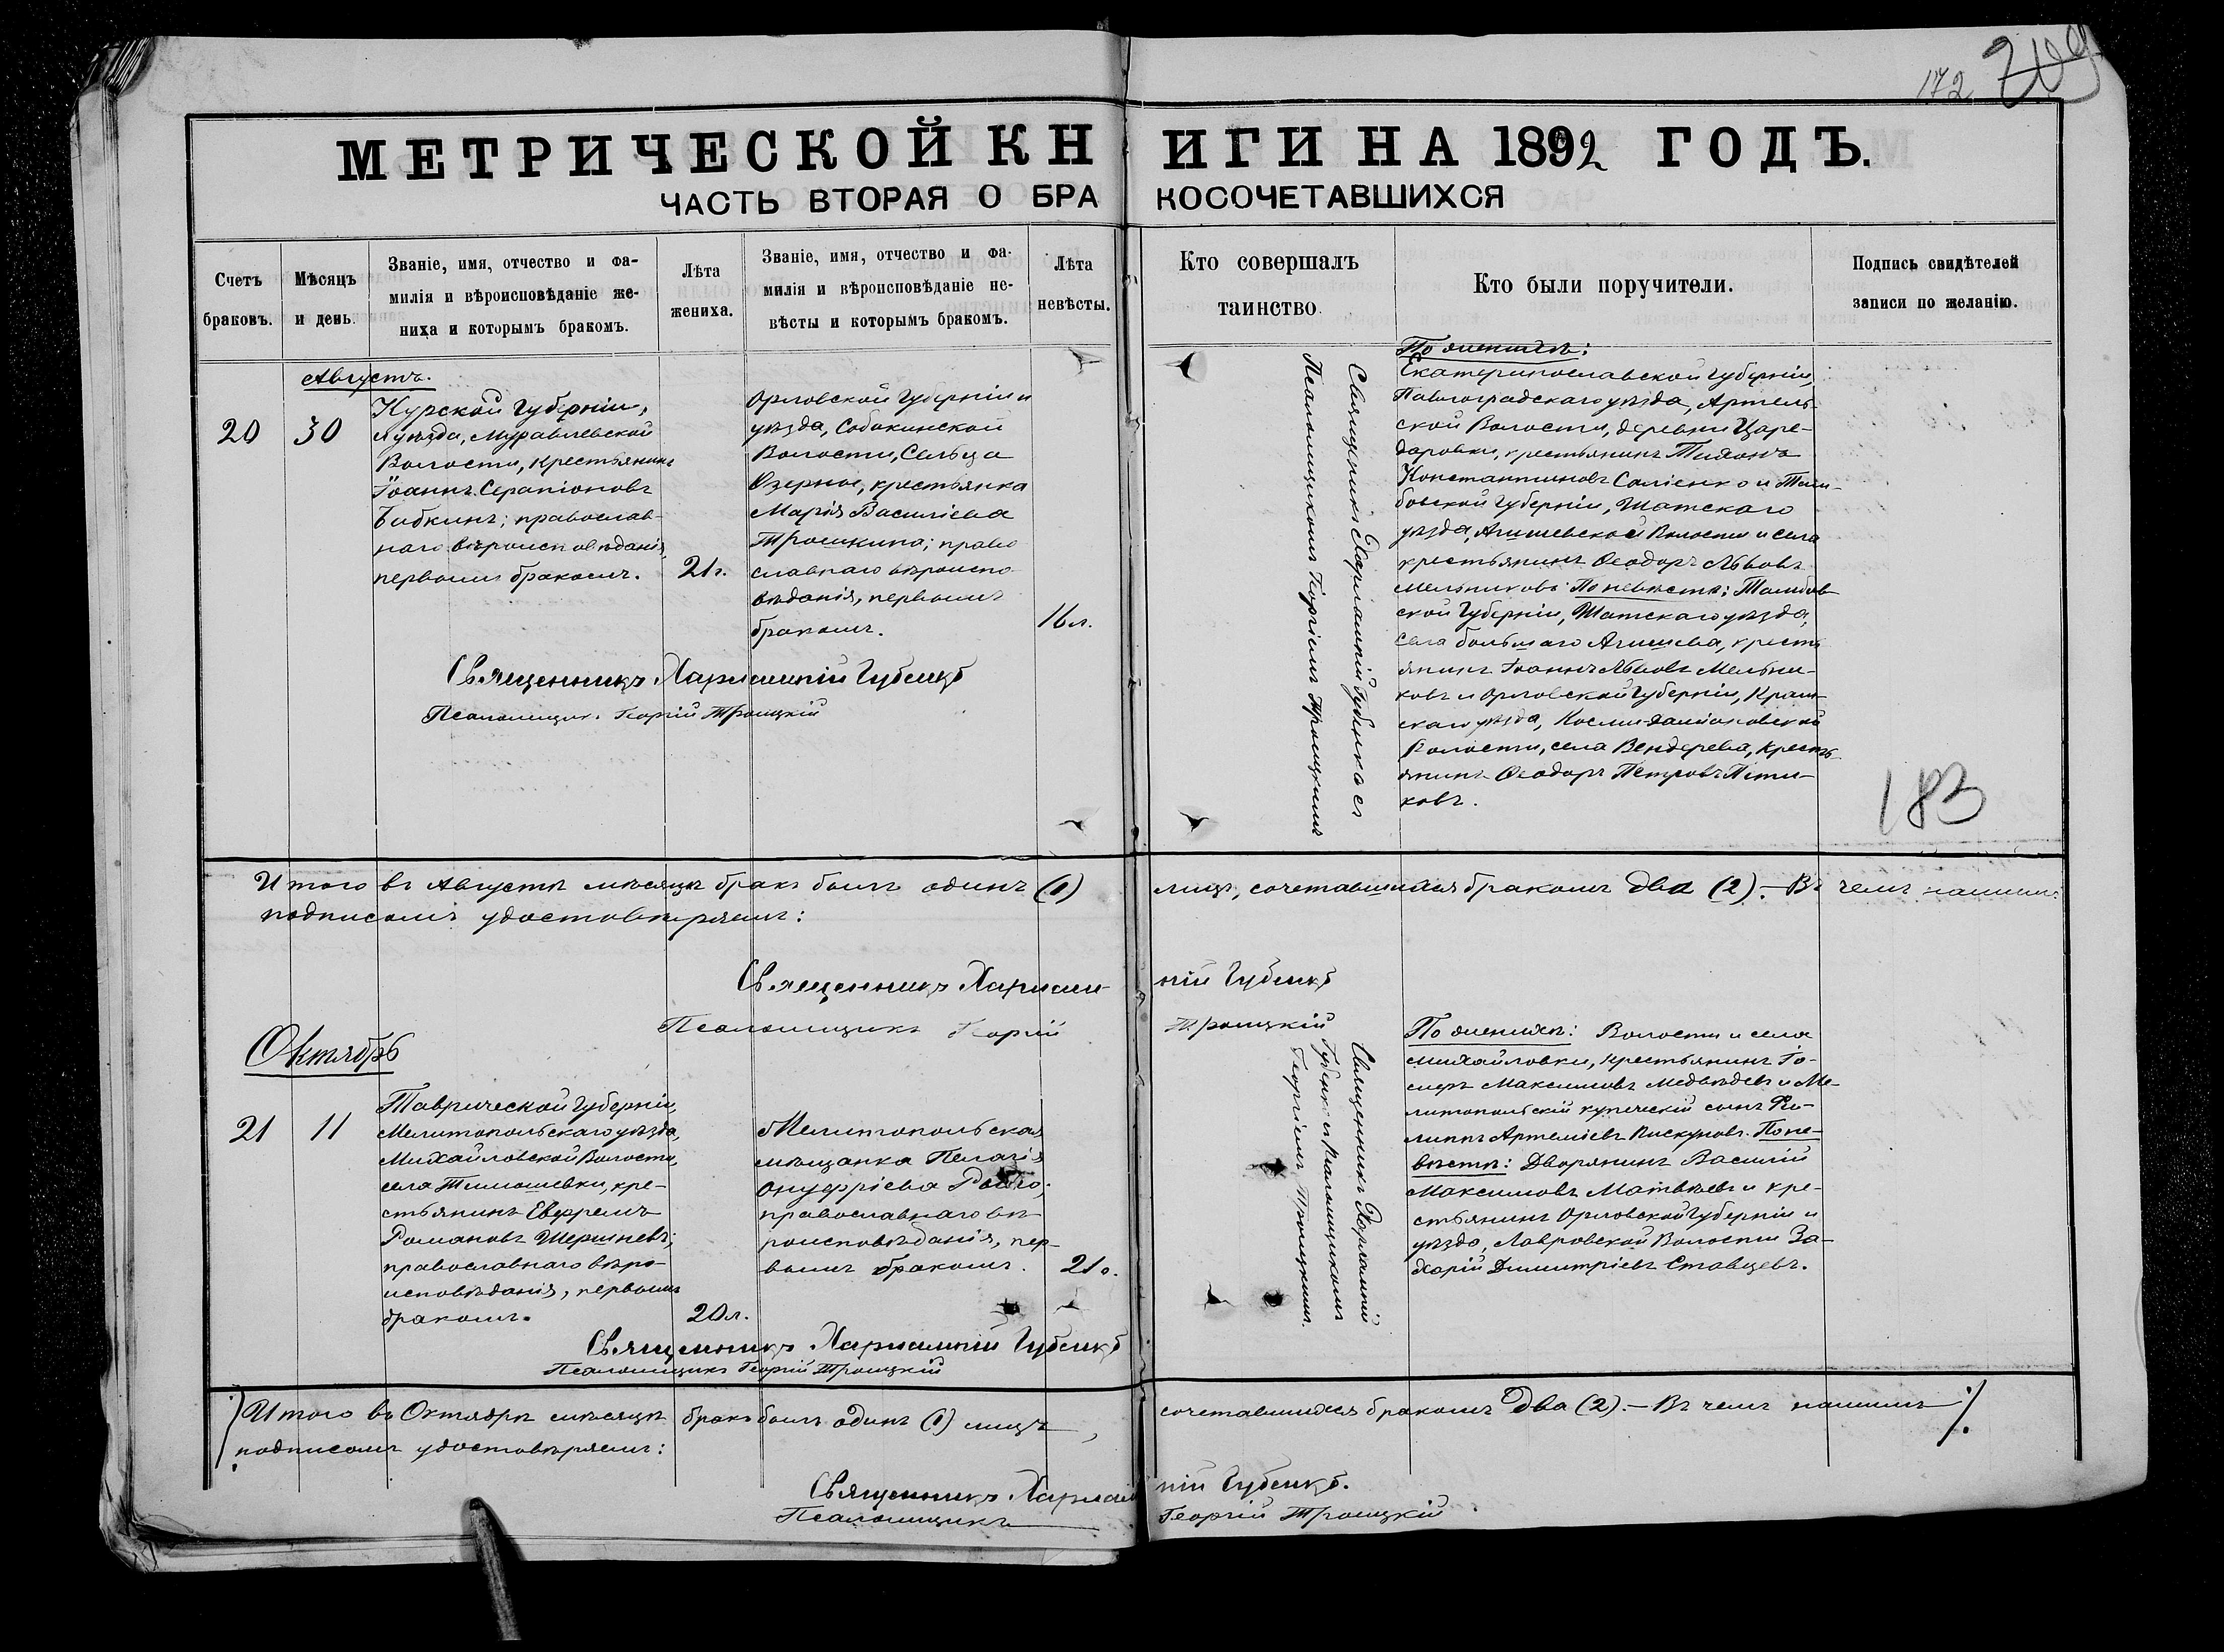 172 209
МЕТРИЧЕСКОЙ КНИГИ НА 1892 ГОДЪ.
ЧАСТЬ ВТОРАЯ О БРАКОСОЧЕТАВШИХСЯ
Счетъ
браковъ.
Мѣсяцъ
и день.
Званіе, имя, отчество и фа-
милія и вѣроисповѣданіе же-
ниха и которымъ бракомъ.
Лѣта
жениха.
Званіе, имя, отчество и фа-
милія и вѣроисповѣданіе не-
вѣсты и которымъ бракомъ.
Лѣта
невѣсты.
Кто совершалъ
таинство.
Кто были поручители.
Подпись свидѣтелей
записи по желанію.
Августъ.
20
30
Курской Губерніи,
и уѣзда, Муравлевской
Волости, крестьянинъ
Іоаннъ Серапіоновъ
Бабкинъ; православ-
наго вѣроисповѣданія,
первымъ бракомъ.
21г.
Орловской Губерніи и
уѣзда, Собакинской
Волости, Сельца
Озерное, крестьянка
Марія Василіева
Трошкина; право
славнаго вѣроиспо
вѣданія, первымъ
бракомъ.
16л.
Священникъ Харлампій Губенко съ
Псаломщикомъ Георгіемъ Троицкимъ
По женихѣ:
Екатеринославской Губерніи,
Павлоградскаго уѣзда, Артель-
ской Волости, деревни Царе-
даровки, крестьянинъ Тихонъ
Константиновъ Саліенко и Там-
бовской Губерніи, Шатскаго
уѣзда, Агишевской Волости и села
крестьянинъ Ѳеодоръ Львовъ
Мельниковъ. По невѣстѣ: Тамбов
ской Губерніи, Шатскаго уѣзда,
Села большаго Агишева, кресть
янинъ Іоаннъ Львовъ Мельни-
ковъ и Орловской Губерніи, Кром-
скаго уѣзда, Космидаміановской
Волости, села Вендерева, кресть-
янинъ Ѳеодоръ Петровъ
ковъ.
Священникъ Харлампій Губенко
Псаломщикъ Георгій Троицкій
183
Итого въ Августѣ мѣсяцѣ бракъ былъ одинъ (1) лицъ, сочетавшихся бракомъ два (2). — Въ чемъ нашимъ
подписомъ удостовѣряемъ:
Священникъ Харлампій Губенко
Псаломщикъ Георгій Троицкій
Октябрь
21
11
Таврической Губерніи,
Мелитопольскаго уѣзда,
Михайловской Волости,
села Тимошевки, кре-
стьянинъ Евфремъ
Романовъ Шершневъ;
православнаго вѣро-
исповѣданія, первымъ
бракомъ.
20л.
Мелитопольская
мѣщанка Пелагія
Онуфріева
православнаго вѣ-
роисповѣданія, пер-
вымъ бракомъ.
21г.
Священникъ Харлампій
Губенко съ Псаломщикомъ
Георгіемъ Троицкимъ.
По женихѣ: Волости и села
Михайловки, крестьянинъ Іо-
сифъ Максимовъ Медвѣдевъ и Ме-
литопольскій купеческій сынъ Фи-
липпъ Артеміевъ Пискуновъ. По не-
вѣстѣ: Дворянинъ Василій
Максимовъ Матвѣевъ и кре-
стьянинъ Орловской Губерніи и
уѣзда, Лавровской Волости За-
харій Димитріевъ Ставцевъ.
Священникъ Харлампій Губенко
Псаломщикъ Георгій Троицкій
Итого въ Октябрѣ мѣсяцѣ бракъ былъ одинъ (1) лицъ, сочетавшихся бракомъ два (2). — Въ чемъ нашимъ
подписомъ удостовѣряемъ:
Священникъ Харлампій Губенко.
Псаломщикъ Георгій Троицкій